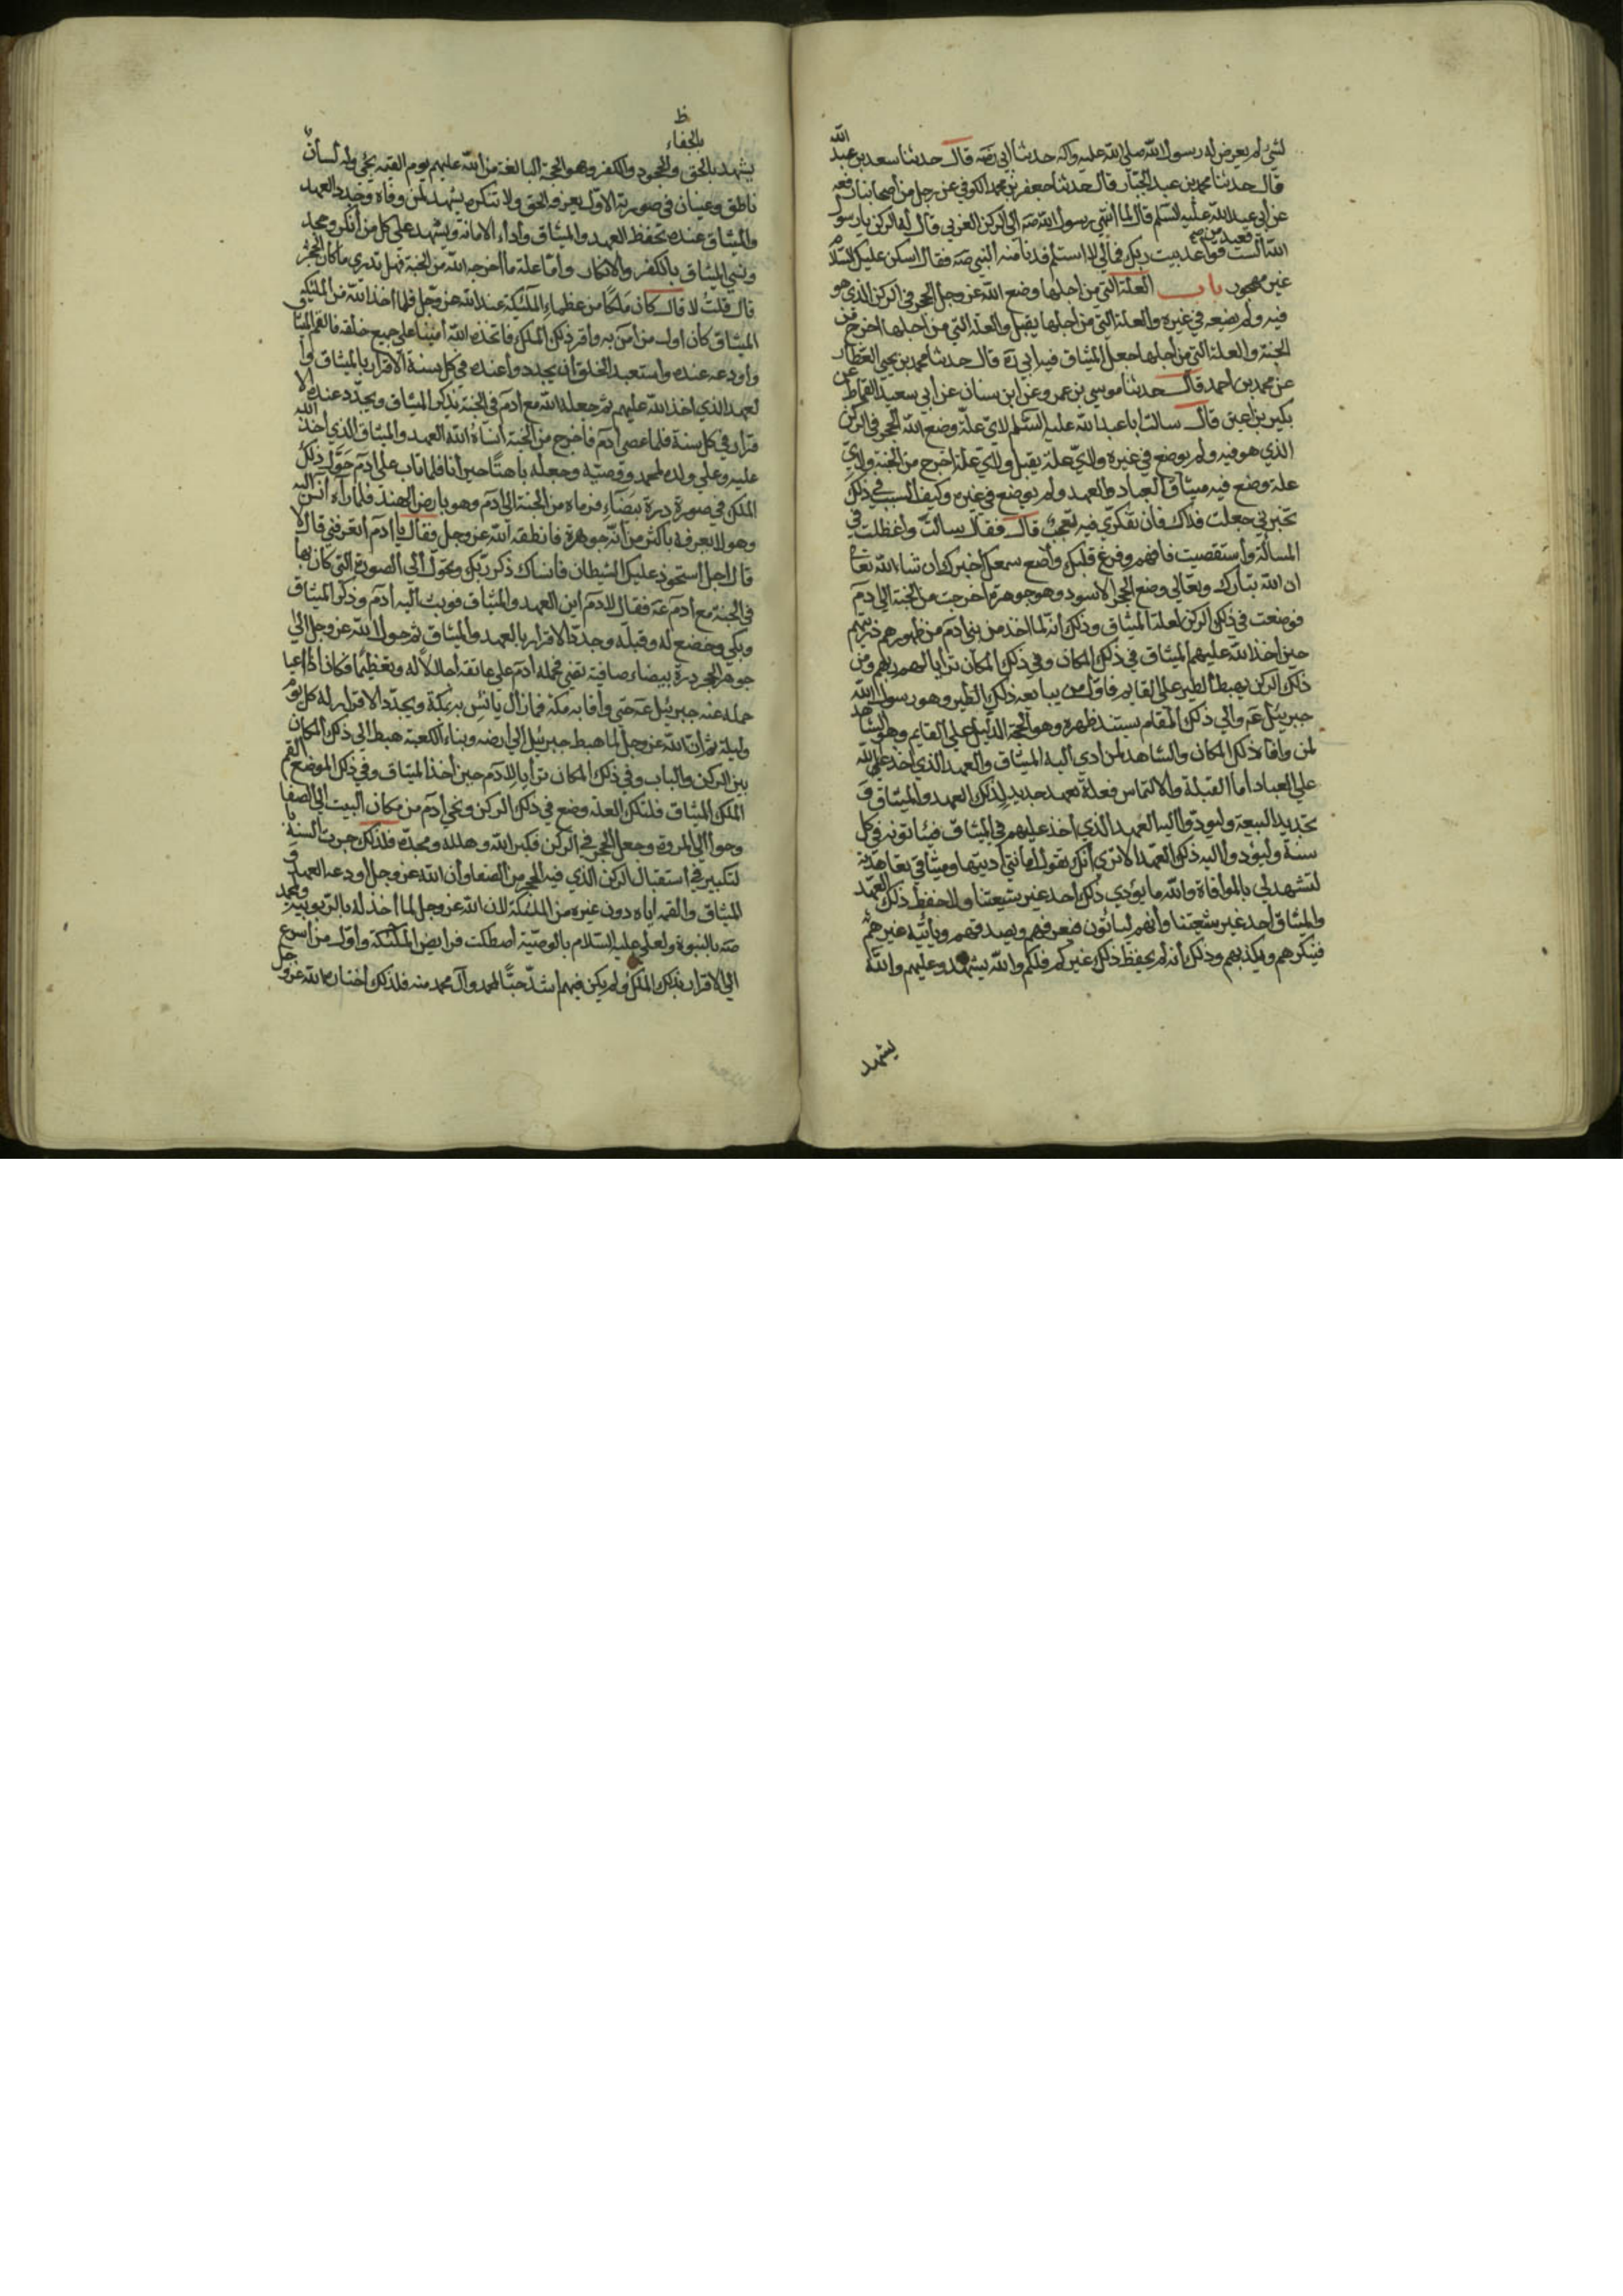 لشئ لم يعرض له رسول الله صلى الله عليه وآله حدثنا ابي رضه قال حدثنا سعد بن عبد الله
قال حدثنا محمد بن عبد الجبار قال حدثنا جعفر بن محمد الكوفي عن رجل من اصحابنا رفعه
عن ابي عبد الله عليه السلم قال لما انتهى رسول الله صه الى الركن الغربي قال له الركن يا رسول
الله الست قعيد من قواعد بيت ربك فمالي لا استلم فدنا منه النبي صه فقال اسكن عليك السلام
غير مهجور باب العلة التي من اجلها وضع الله عز وجل الحجر في الركن الذي هو
فيه ولم يضعه في غيره والعلة التي من اجلها يقبل والعلة التي من اجلها اخرج من
الجنة والعلة التي من اجلها جعل الميثاق فيه ابي ره قال حدثنا محمد بن يحيى العطار
عن محمد بن احمد قال حدثنا موسى بن عمر وعن ابن سنان عن ابي سعيد القماط عن
بكير بن اعين قال سالت ابا عبد الله عليه السلم لاي علة وضع الله الحجر في الركن
الذي هو فيه ولم يوضع في غيره ولاي علة يقبل ولاي علة اخرج من الجنة ولاي
علة وضع فيه ميثاق العباد والعهد ولم يوضع في غيره وكيف السبب في ذلك
تخبرني جعلت فداك فان تفكري فيه لعجب قال فقال سالت واعظلت في
المسألة واستقصيت فافهم وفرغ قلبك واضع سمعك اخبرك ان شاء الله تعا
ان الله تبارك وتعالى وضع الحجر الاسود وهو جوهرة اخرجت من الجنة الى ادم
فوضعت في ذلك الركن لعلة الميثاق وذلك انه لما اخذ من بني ادم من ظهورهم ذريتهم
حين اخذ الله عليهم الميثاق في ذلك المكان وفي ذلك المكان ترايا لهم ربهم ومن
ذلك الركن يهبط الطير على القايم فاول من يبايعه ذلك الطير وهو رسول الله
جبرئيل عه والى ذلك المقام يسند ظهره وهو الحجة الدليل على القايم وهو الشاهد
لمن وافاه ذلك المكان والشاهد لمن ادى اليه الميثاق والعهد الذي اخذ الله
على العباد اما القبلة والالتماس فعلة تعهد جديد لذلك العهد والميثاق و
تجديد البيعة وليؤدوا اليه العهد الذي اخذ عليهم في الميثاق فيئاتونه في كل
سنة وليؤدوا اليه ذلك العهد الا ترى انك تقول امانتي اديتها وميثاقي تعاهدته
لتشهد لي بالموافاة والله ما يؤدي ذلك احد غير شيعتنا ولا حفظ ذلك العهد
والميثاق احد غير شيعتنا وانهم ليئاتون فيعرفهم ويصدقهم ويأتيه غيرهم
فينكرهم ويكذبهم وذلك انه لم يحفظ ذلك غيركم فلكم والله يشهد وعليهم والله
يشهد
ظ
بالجفاء
يشهد بالحق والجحود والكفر وهو الحجة البالغة من الله عليهم يوم القيمة يجئ وله لسان
ناطق وعينان في صورته الاولى يعرفه الحق ولا تنكره يشهد لمن وفاه وجدد العهد
والميثاق عنده بحفظ العهد والميثاق واداء الامانة ويشهد على كل من انكر وجحد
ونسي الميثاق بالكفر والانكار واما علة ما اخرجه الله من الجنة فهل تدري ما كان الحجر
قال قلت لا قال كان ملكا من عظماء الملئكة عند الله عز وجل فلما اخذ الله من الملئكة
الميثاق كان اول من امن به واقر ذلك الملك فاتخذه الله امينا على جميع خلقه فالقمه الميثاق
واودعه عنده واستعبد الخلق ان يجددوا عنده في كل سنة الاقرار بالميثاق وا
لعهد الذي اخذ الله عليهم ثم جعله الله مع ادم في الجنة يذكر الميثاق ويجدد عنده الا
قرار في كل سنة فلما عصى ادم فاخرج من الجنة انساه الله العهد والميثاق الذي اخذ الله
عليه وعلى ولده لمحمد ووصيه وجعله باهتا حيرانا فلما تاب على ادم حول ذلك
الملك في صورة درة بيضاء فرماه من الجنة الى ادم وهو بارض الهند فلما رآه انس اليه
وهو لا يعرفه باكثر من انه جوهرة فانطقه الله عز وجل فقال يا ادم اتعرفني قال لا
قال اجل استحوذ عليك الشيطان فانساك ذكر ربك وتحول الى الصورة التي كان بها
في الجنة مع ادم عه فقال لادم اين العهد والميثاق فوثب اليه ادم وذكر الميثاق
وبكى وخضع له وقبله وجدد الاقرار بالعهد والميثاق ثم حول الله عز وجل الى
جوهر الحجر درة بيضاء صافية تضئ فحمله ادم على عاتقه اجلالا له وتعظيما فكان اذا اعيا
حمله عنه جبرئيل عه حتى وافا به مكة فما زال يانس به بمكة ويجدد الاقرار له كل يوم
وليلة ثم ان الله عز وجل لما هبط جبرئيل الى ارضه وبناء الكعبة هبط الى ذلك المكان
بين الركن والباب وفي ذلك المكان ترايا لادم حين اخذ الميثاق وفي ذلك الموضع القم
الملك الميثاق فلتلك العلة وضع في ذلك الركن ونحى ادم من مكان البيت الى الصفا
وحوا الى المروة وجعل الحجر في الركن فكبر الله وهلله ومجده فلذلك جرت السنة با
لتكبير في استقبال الركن الذي فيه الحجر من الصفا وان الله عز وجل اودعه العهد و
الميثاق والقمه اياه دون غيره من الملئكة لان الله عز وجل لما اخذ له بالربوبية ولمحمد
صه بالنبوة ولعلي عليه السلام بالوصية اصطكت فرايص الملئكة واول من اسرع
الى الاقرار بذلك الملك ولم يكن فيهم اشد حبا لمحمد وآل محمد منه فلذلك اختاره الله عز وجل